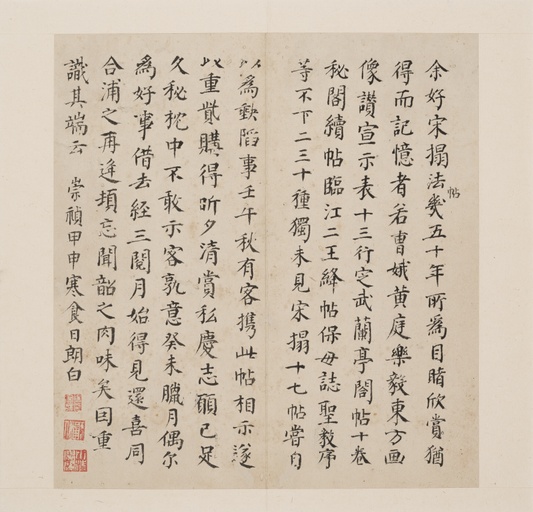 余好宋搨法帖幾五十年所為目睹欣賞猶
得而記憶者若曹娥黃庭樂毅東方画
像讚宣示表十三行定武蘭亭閣帖十卷
秘閣續帖臨江二王絳帖保母誌聖教序
等不下二三十種獨未見宋搨十七帖嘗自
以為缺陷事壬午秋有客携此帖相示遂
以重貲購得昕夕清賞私慶志願已足
久秘枕中不敢示客孰意癸未臘月偶尔
為好事借去経三閱月始得見還喜同
合浦之再逢頓忘聞韶之肉味矣因重
識其端云 崇禎甲申寒食日朗白